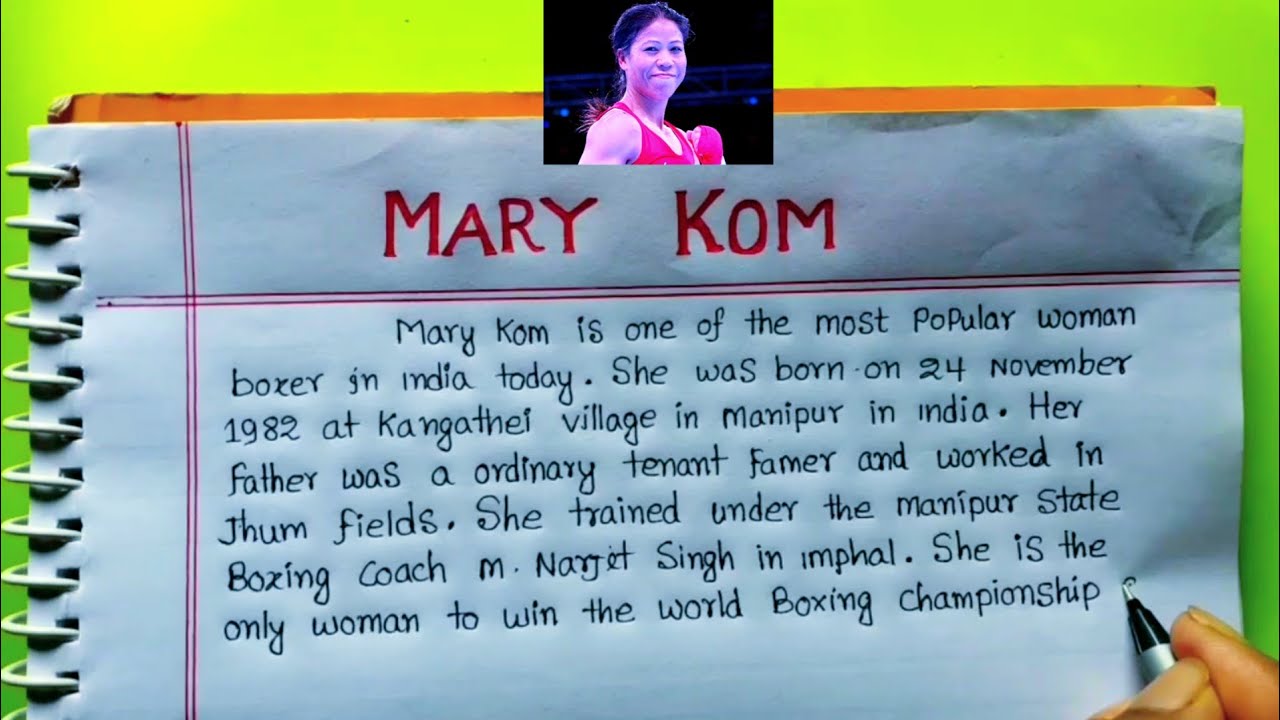 MARY KOM
Mary Kom is one of the most Popular woman
boxer in india today. She was born on 24 November
1982 at Kangathei village in manipur in india. Her
father was a ordinary tenant famer and worked in
Jhum fields. She trained under the manipur State
Boxing Coach M. Narjit Singh in imphal. She is the
only woman to win the world Boxing Championship